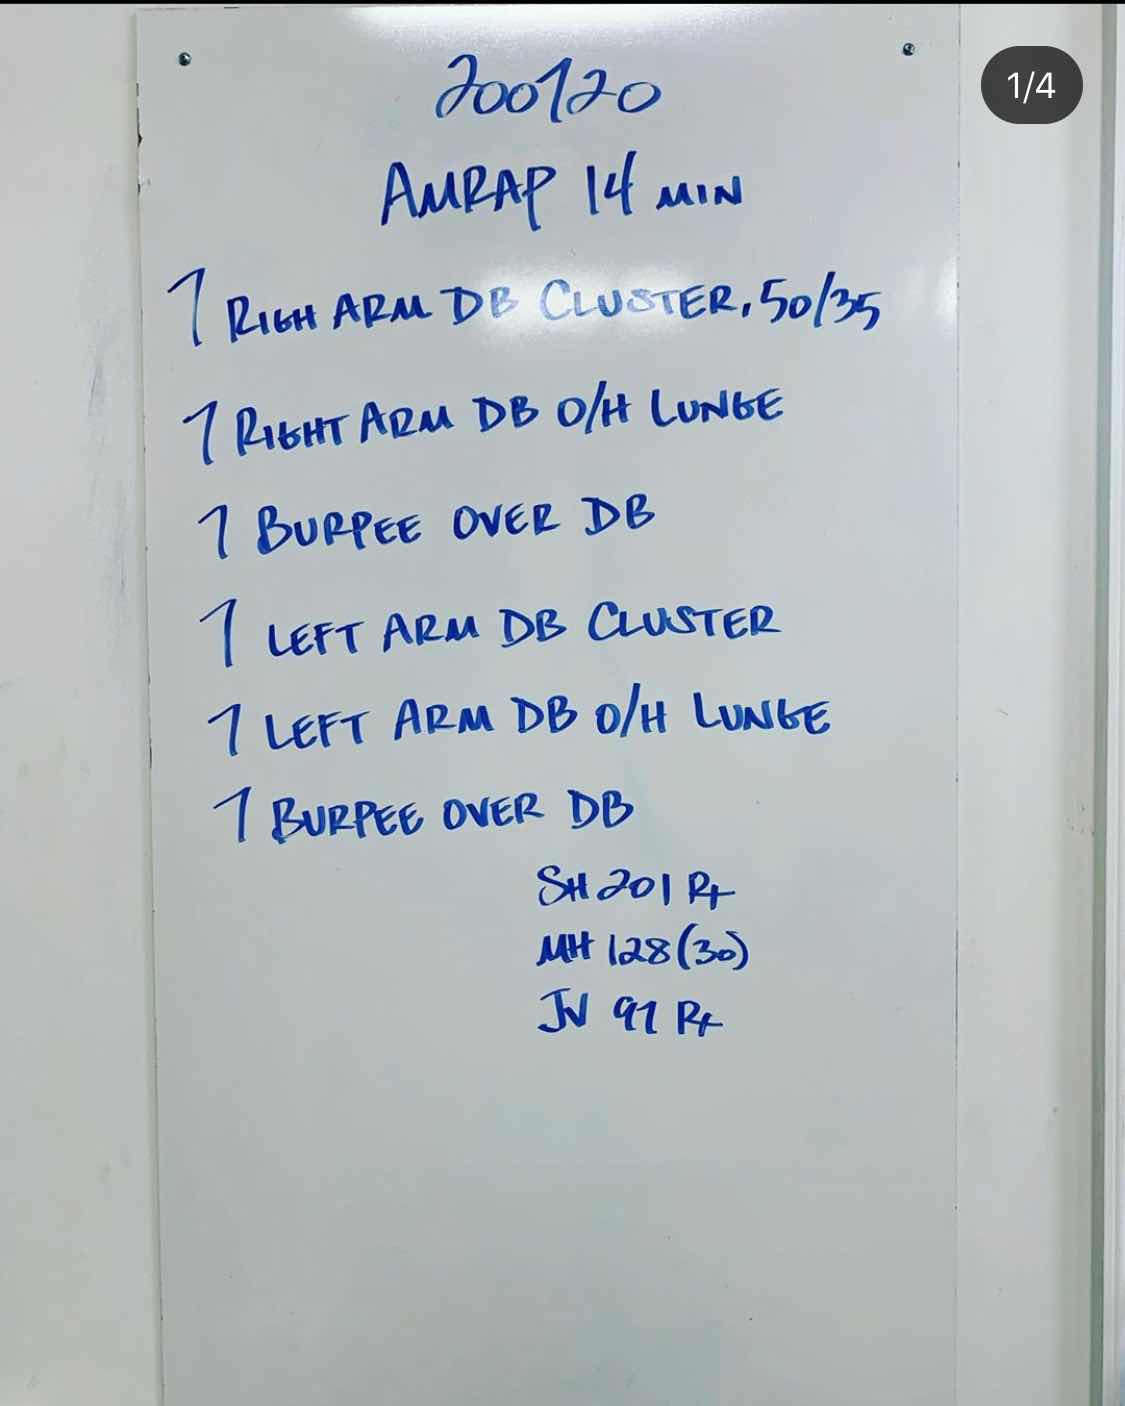 200720
AMRAP 14 MIN
7 RIGH ARM DB CLUSTER, 50/35
7 RIGHT ARM DB O/H LUNGE
7 BURPEE OVER DB
7 LEFT ARM DB CLUSTER
7 LEFT ARM DB O/H LUNGE
7 BURPEE OVER DB
SH 201 Rx
MH 128 (30)
JV 97 Rx
1/4